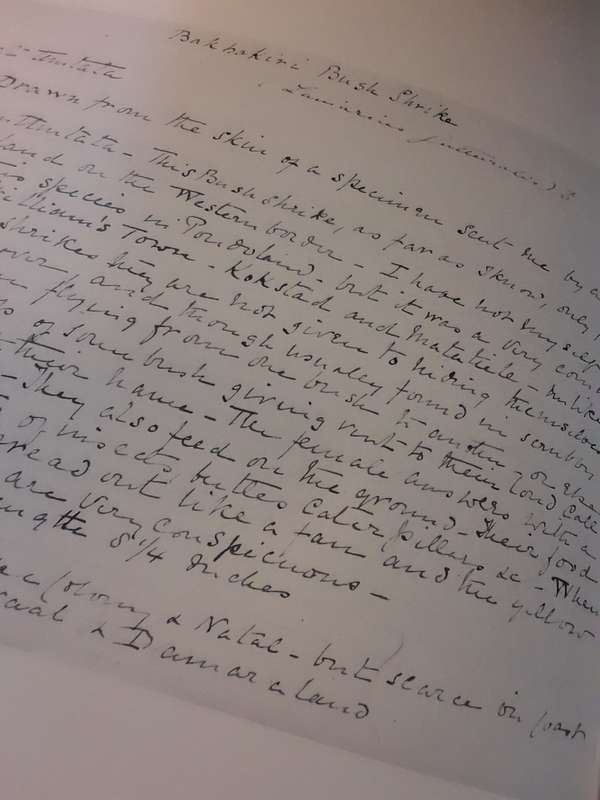 Bakbakiri Bush Shrike
Umtata
(Laniarius
Drawn from the skin of a specimen sent me by a
Umtata - This Bush Shrike, as far as I know, only
land on the Western border - I have not myself
species in Pondoland - but it was a very com
William's Town - Kokstad and Matatiele - Unlike
shrikes they are not given to hiding themselves
and though usually found in scrubby
flying from one bush to another - or else
of some bush giving vent to their loud call
their name - The female answers with a
- They also feed on the ground - Their food
of insects, beetles caterpillars &c - When
spread out like a fan and the yellow
are very conspicuous -
length 8 1/4 inches
Colony & Natal - but scarce on
& Damaraland